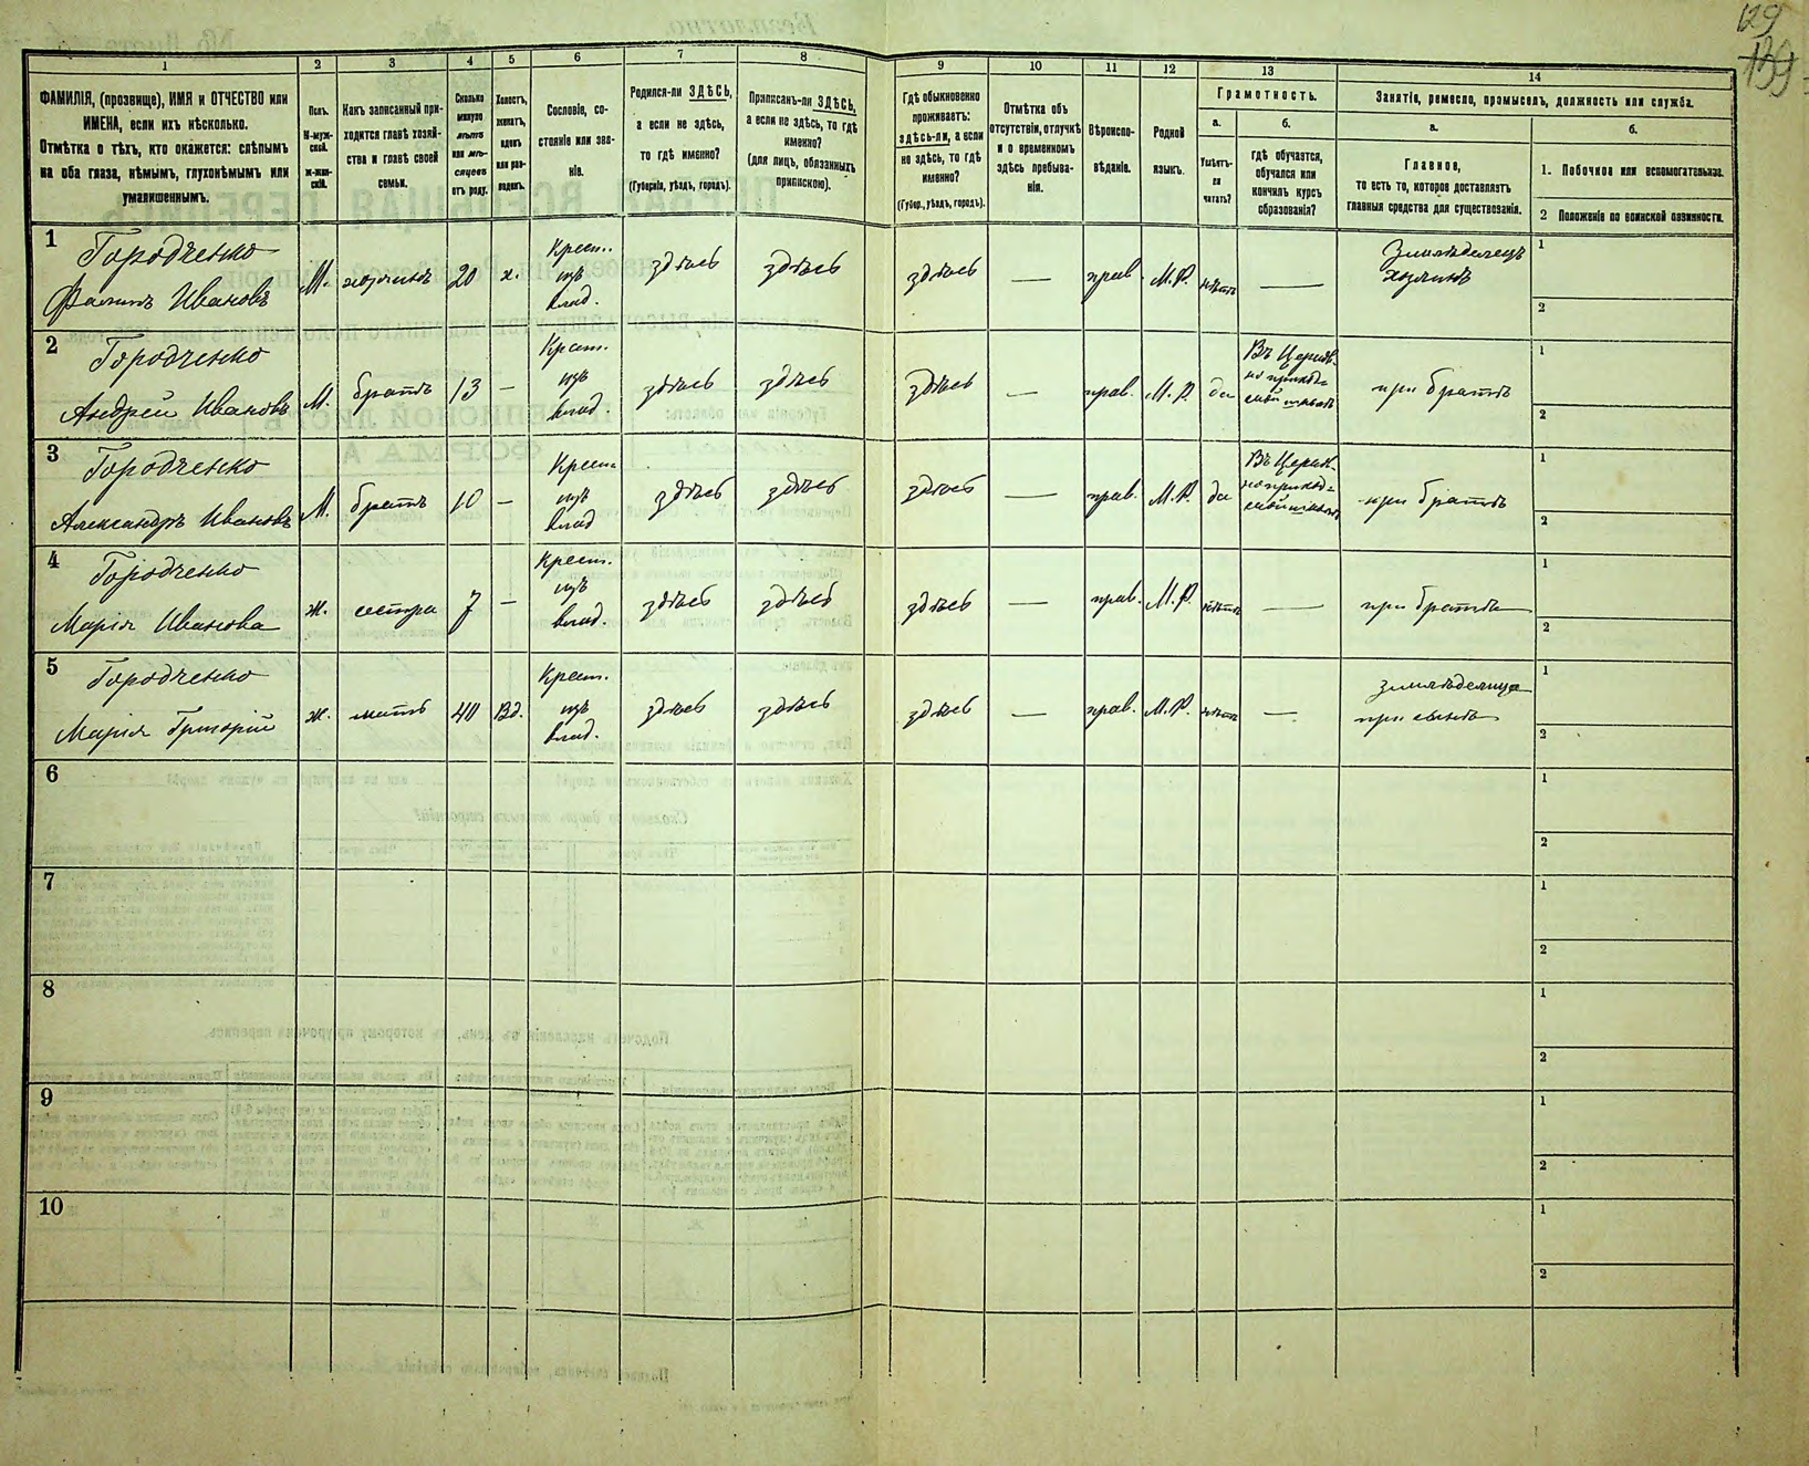 129
139
1 2 3 4 5 6 7 8 9 10 11 12 13 14
ФАМИЛІЯ, (прозвище), ИМЯ и ОТЧЕСТВО или
ИМЕНА, если ихъ нѣсколько.
Отмѣтка о тѣхъ, кто окажется: слѣпымъ
на оба глаза, нѣмымъ, глухонѣмымъ или
умалишеннымъ.
Полъ.
М-муж-
ской.
Ж-жен-
скій.
Какъ записанный при-
ходится главѣ хозяй-
ства и главѣ своей
семьи.
Сколько
минуло
лѣтъ
или мѣ-
сяцевъ
отъ роду.
Холостъ,
женатъ,
вдовъ
или раз-
веденъ.
Сословіе, со-
стояніе или зва-
ніе.
Родился-ли ЗДѢСЬ,
а если не здѣсь,
то гдѣ именно?
(Губернія, уѣздъ, городъ).
Приписанъ-ли ЗДѢСЬ,
а если не здѣсь, то гдѣ
именно?
(для лицъ, обязанныхъ
припискою).
Гдѣ обыкновенно
проживаетъ:
здѣсь-ли, а если
не здѣсь, то гдѣ
именно?
(Губер., уѣздъ, городъ).
Отмѣтка объ
отсутствіи, отлучкѣ
и о временномъ
здѣсь пребыва-
ніи.
Вѣроиспо-
вѣданіе.
Родной
языкъ.
Грамотность.
а.
Умѣетъ-
ли
читать?
б.
гдѣ обучается,
обучался или
кончилъ курсъ
образованія?
Занятіе, ремесло, промыселъ, должность или служба.
а.
Главное,
то есть то, которое доставляетъ
главныя средства для существованія.
б.
1. Побочное или вспомогательное.
2 Положеніе по воинской повинности.
1 Городченко Крест. Земледѣлецъ 1
Ивановъ М. хозяинъ 20 х. изъ здѣсь здѣсь здѣсь — прав. М.Р. нѣтъ — хозяинъ
влад. 2
2 Городченко Крест. Въ Церков- 1
Андрей Ивановъ М. братъ 13 — изъ здѣсь здѣсь здѣсь — прав. М.Р. да но приход= при братѣ
влад. ской школѣ 2
3 Городченко Крест. Въ Церков- 1
Александръ Ивановъ М. братъ 10 — изъ здѣсь здѣсь здѣсь — прав. М.Р. да но приход= при братѣ
влад ской школѣ 2
4 Городченко Крест. 1
Марія Иванова ж. сестра 7 — изъ здѣсь здѣсь здѣсь — прав. М.Р. нѣтъ — при братѣ
влад. 2
5 Городченко Крест. земледѣлица 1
Марія Григорій ж. мать 40 Вд. изъ здѣсь здѣсь здѣсь — прав. М.Р. нѣтъ — при сынѣ
влад. 2
6 1
2
7 1
2
8 1
2
9 1
2
10 1
2